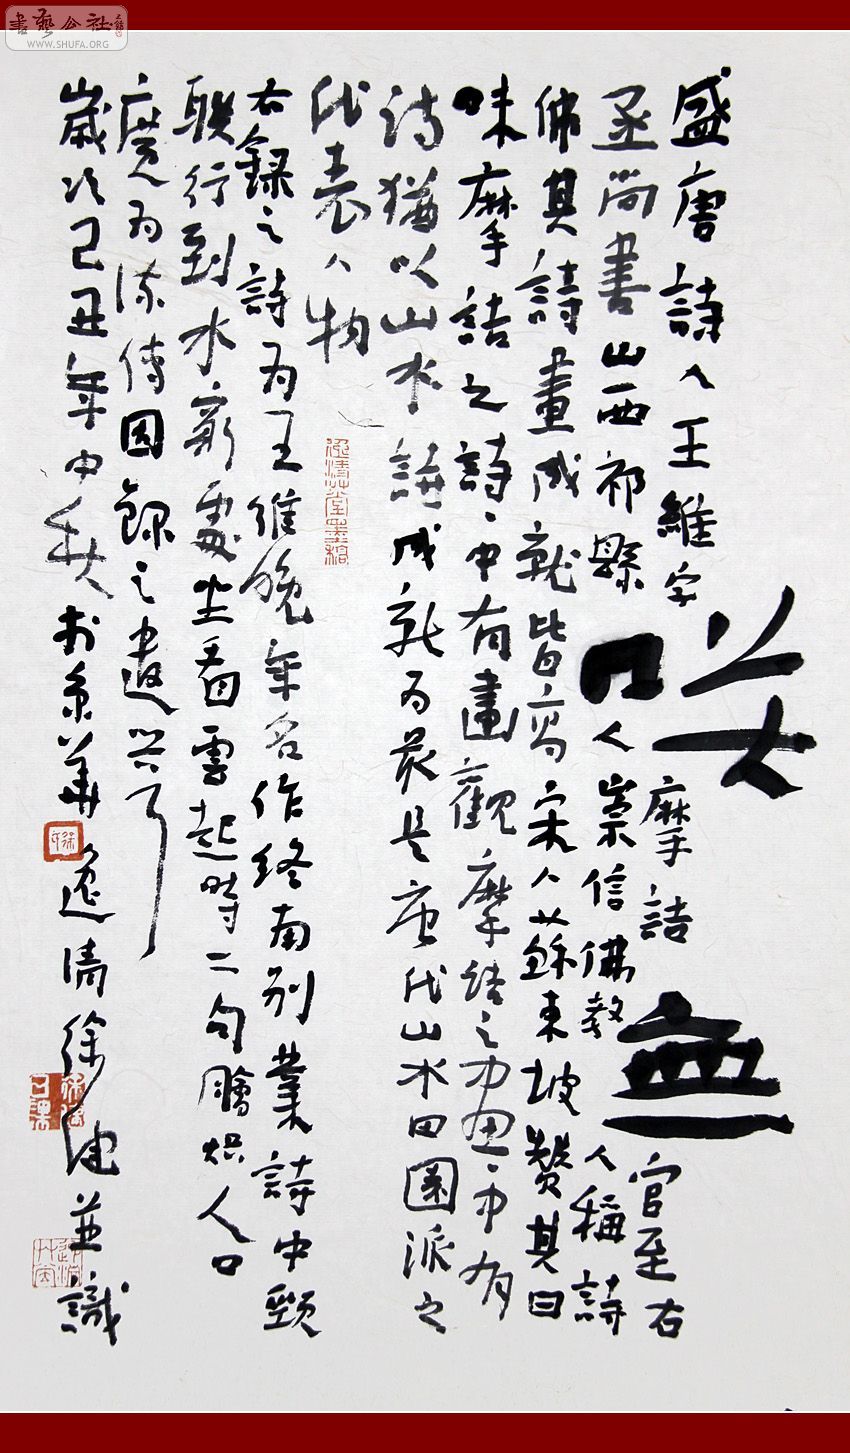 書藝公社
WWW.SHUFA.ORG
盛唐詩人王維字摩詰官至右
丞尚書山西祁縣人崇信佛教人稱詩
佛其詩畫成就皆高宋人蘇東坡贊其曰
味摩詰之詩、中有畫觀摩詰之畫、中有
詩猶以山水詩成就为最是唐代山水田園派之
代表人物
右錄之詩为王維晚年名作終南别業詩中頸
聯行到水窮處坐看雲起時二句膾炽人口
廣为流傳因錄之遣興耳
歲次己丑年中秋於京華逸清徐並識